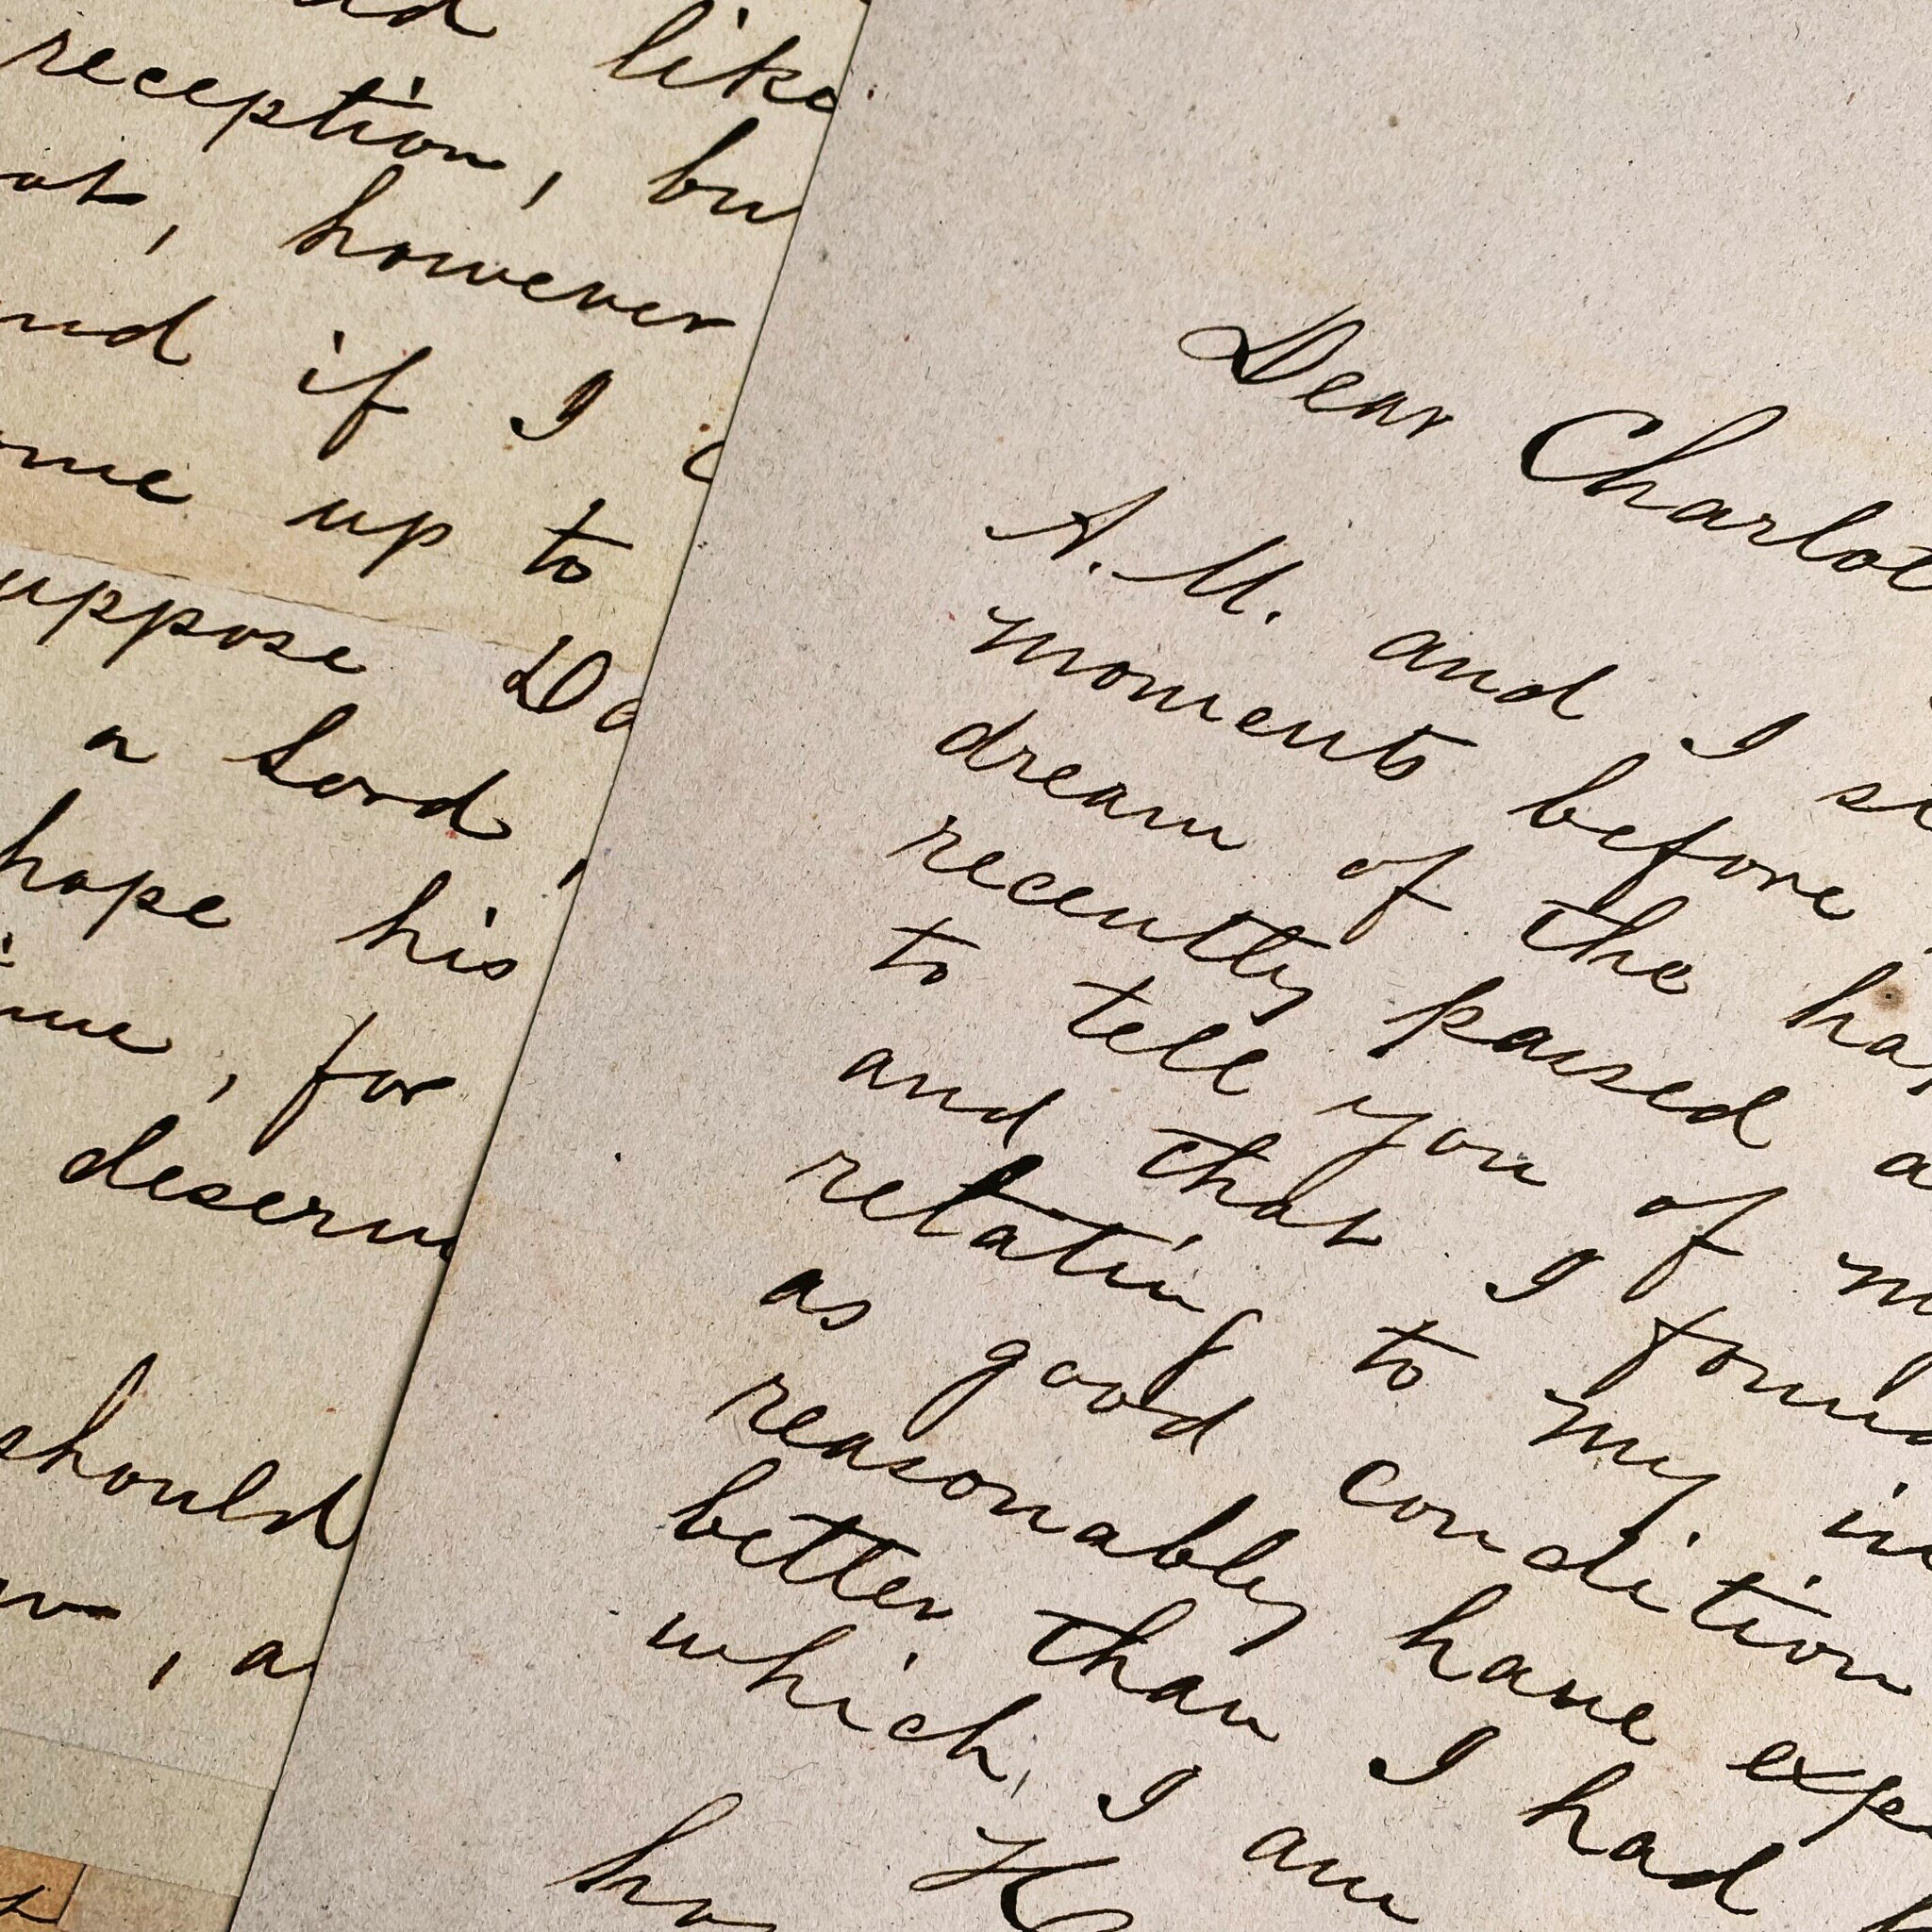 like
reception, bu
at, however
nd if I c
ome up to
uppose Do
a Lord,
hope his
me, for
deserv
should
, a
Dear Charlot
A. M. and I s
moments before
dream of the ha
recently passed a
to tell you of m
and that I found
relating to my in
as good condition
reasonably have exp
better than I had
which, I am
ho